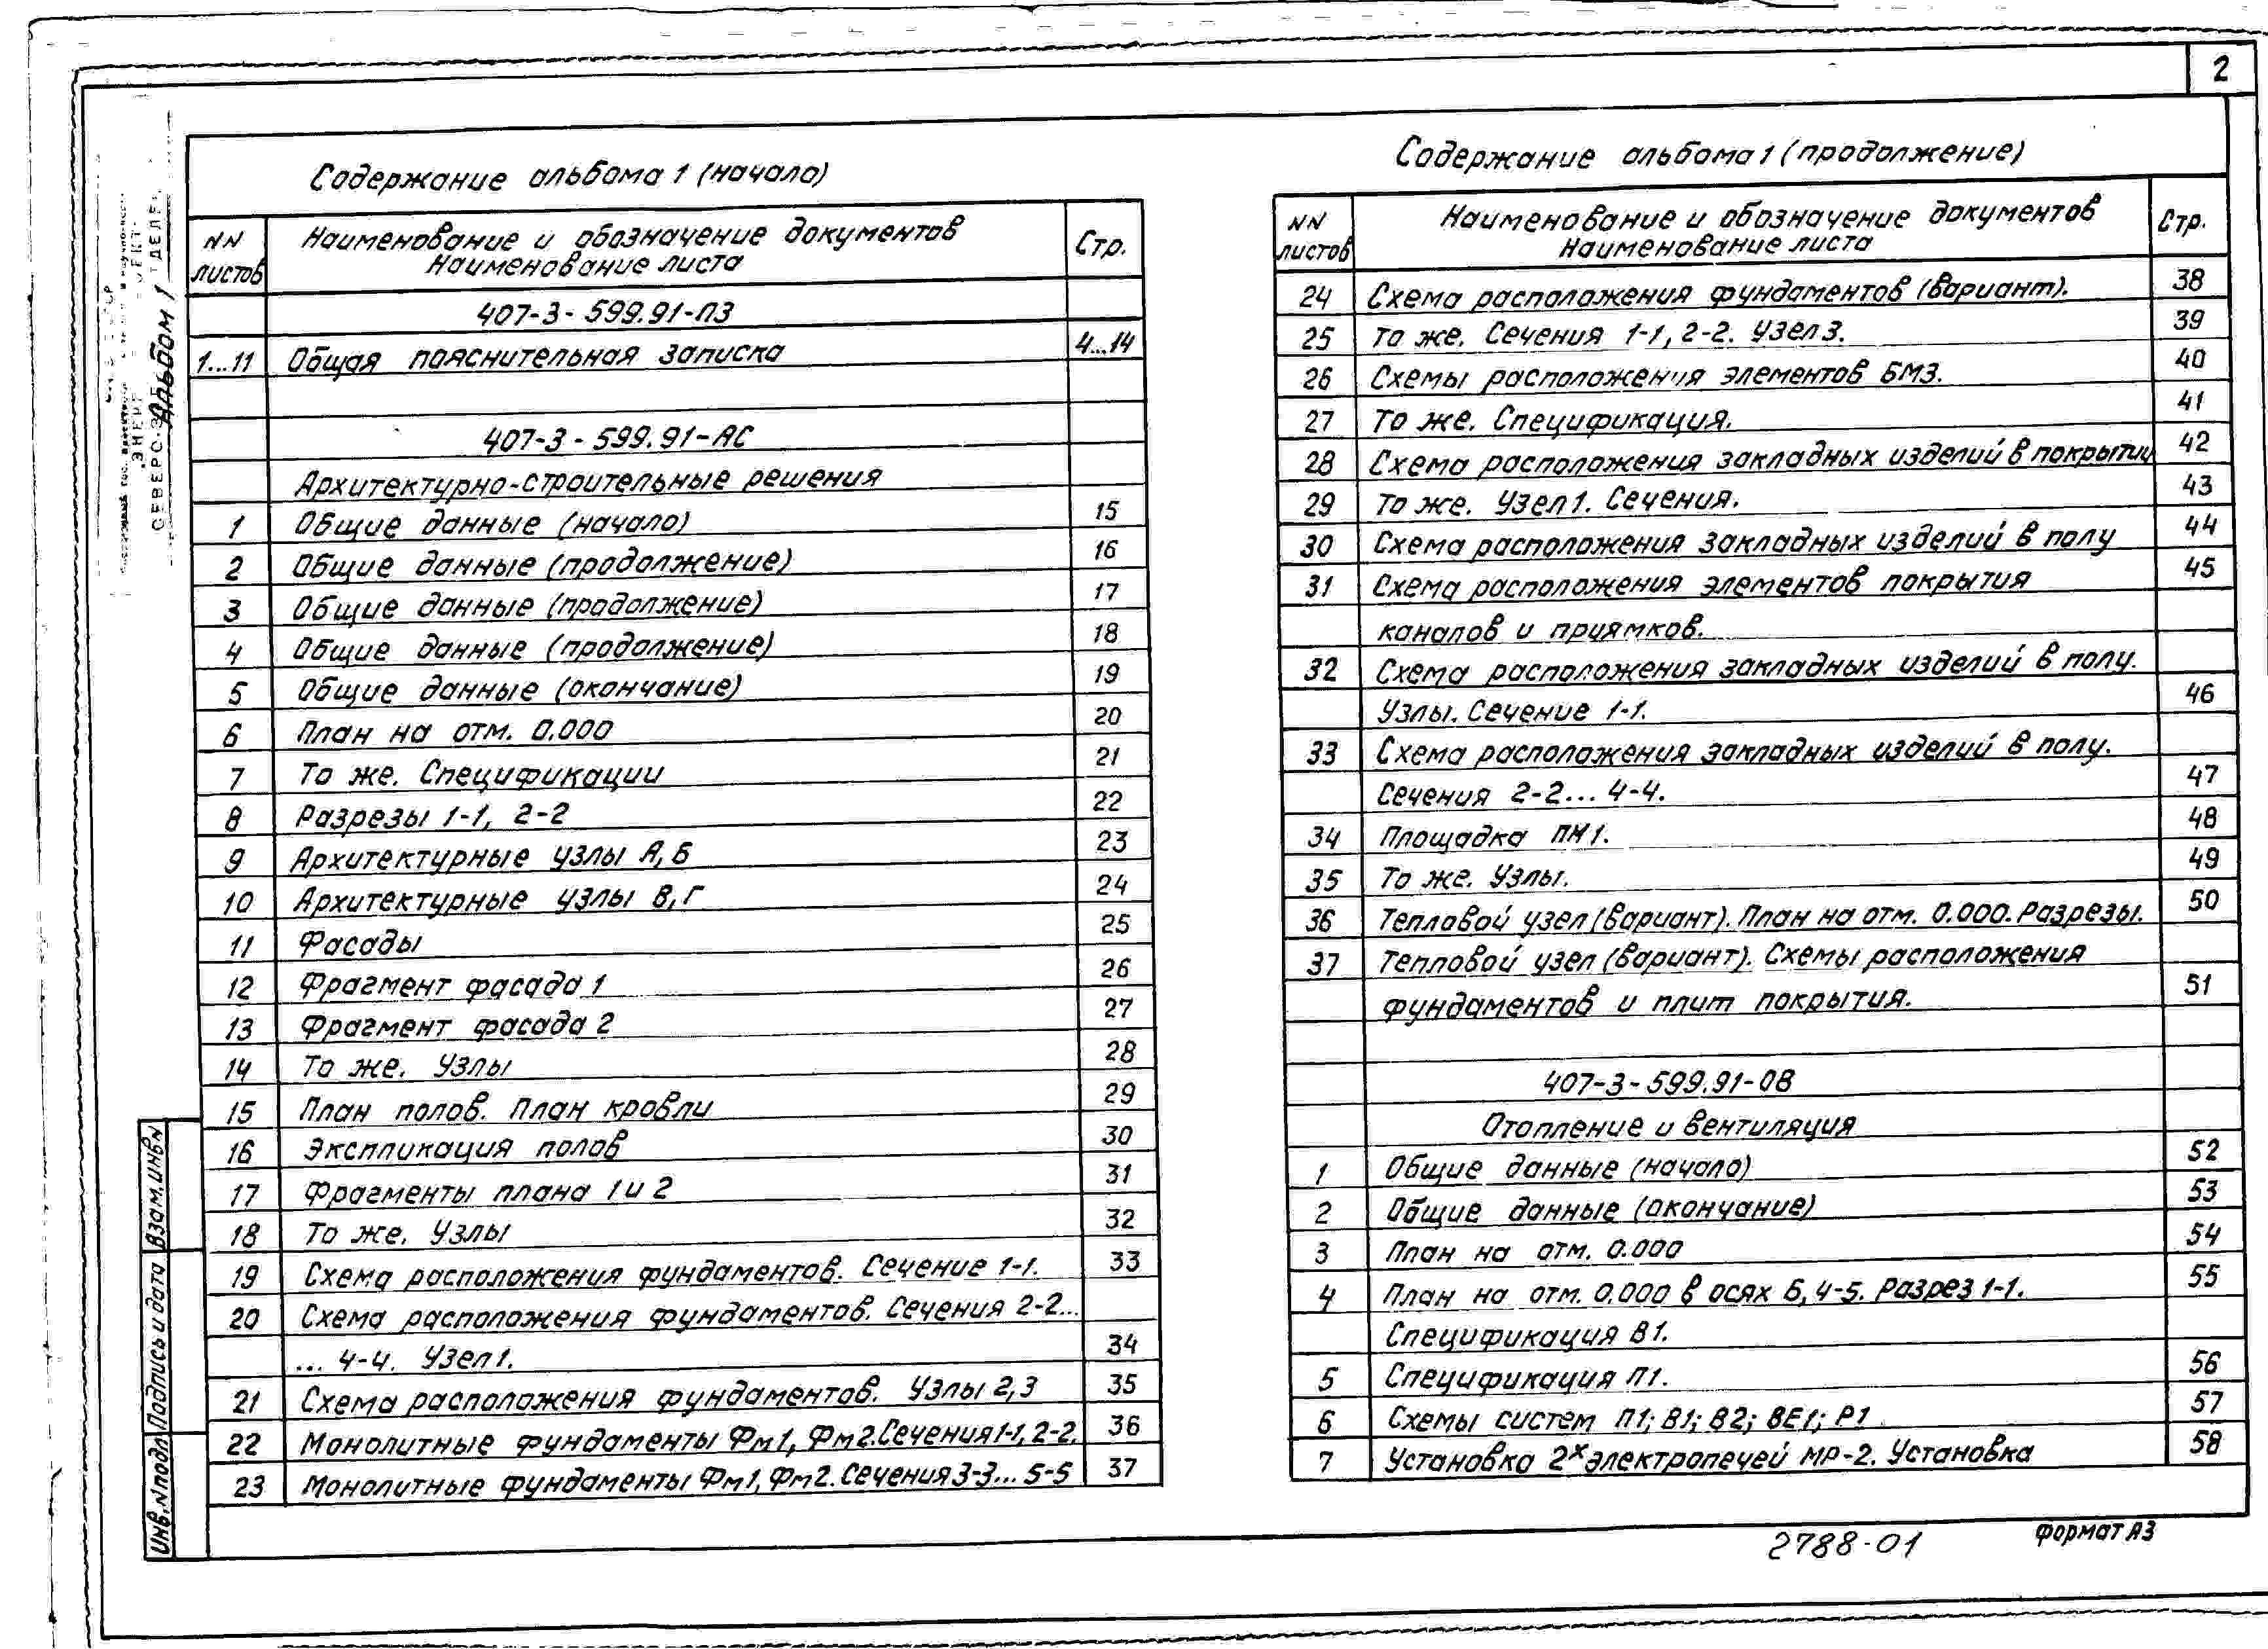 2
Содержание альбома 1 (начало)
NN листов
Наименование и обозначение документов
Наименование листа
Стр.
407-3-599.91-ПЗ
1...11 Общая пояснительная записка 4...14
407-3-599.91-АС
Архитектурно-строительные решения
1 Общие данные (начало) 15
2 Общие данные (продолжение) 16
3 Общие данные (продолжение) 17
4 Общие данные (продолжение) 18
5 Общие данные (окончание) 19
6 План на отм. 0.000 20
7 То же. Спецификации 21
8 Разрезы 1-1, 2-2 22
9 Архитектурные узлы А, Б 23
10 Архитектурные узлы В, Г 24
11 Фасады 25
12 Фрагмент фасада 1 26
13 Фрагмент фасада 2 27
14 То же. Узлы 28
15 План полов. План кровли 29
16 Экспликация полов 30
17 Фрагменты плана 1 и 2 31
18 То же. Узлы 32
19 Схема расположения фундаментов. Сечение 1-1. 33
20 Схема расположения фундаментов. Сечения 2-2...
... 4-4. Узел 1. 34
21 Схема расположения фундаментов. Узлы 2,3 35
22 Монолитные фундаменты Фм1, Фм2. Сечения 1-1, 2-2. 36
23 Монолитные фундаменты Фм1, Фм2. Сечения 3-3... 5-5 37
Содержание альбома 1 (продолжение)
NN листов
Наименование и обозначение документов
Наименование листа
Стр.
24 Схема расположения фундаментов (вариант). 38
25 То же. Сечения 1-1, 2-2. Узел 3. 39
26 Схемы расположения элементов БМЗ. 40
27 То же. Спецификация. 41
28 Схема расположения закладных изделий в покрытии 42
29 То же. Узел 1. Сечения. 43
30 Схема расположения закладных изделий в полу 44
31 Схема расположения элементов покрытия 45
каналов и приямков.
32 Схема расположения закладных изделий в полу.
Узлы. Сечение 1-1. 46
33 Схема расположения закладных изделий в полу.
Сечения 2-2... 4-4. 47
34 Площадка ПМ1. 48
35 То же. Узлы. 49
36 Тепловой узел (вариант). План на отм. 0.000. Разрезы. 50
37 Тепловой узел (вариант). Схемы расположения
фундаментов и плит покрытия. 51
407-3-599.91-ОВ
Отопление и вентиляция
1 Общие данные (начало) 52
2 Общие данные (окончание) 53
3 План на отм. 0.000 54
4 План на отм. 0.000 в осях Б, 4-5. Разрез 1-1. 55
Спецификация В1.
5 Спецификация П1. 56
6 Схемы систем П1; В1; В2; ВЕ1; Р1 57
7 Установка 2х электропечей МР-2. Установка 58
Альбом 1
Взам. инв N
Подпись и дата
Инв. N подл
2788-01
Формат А3